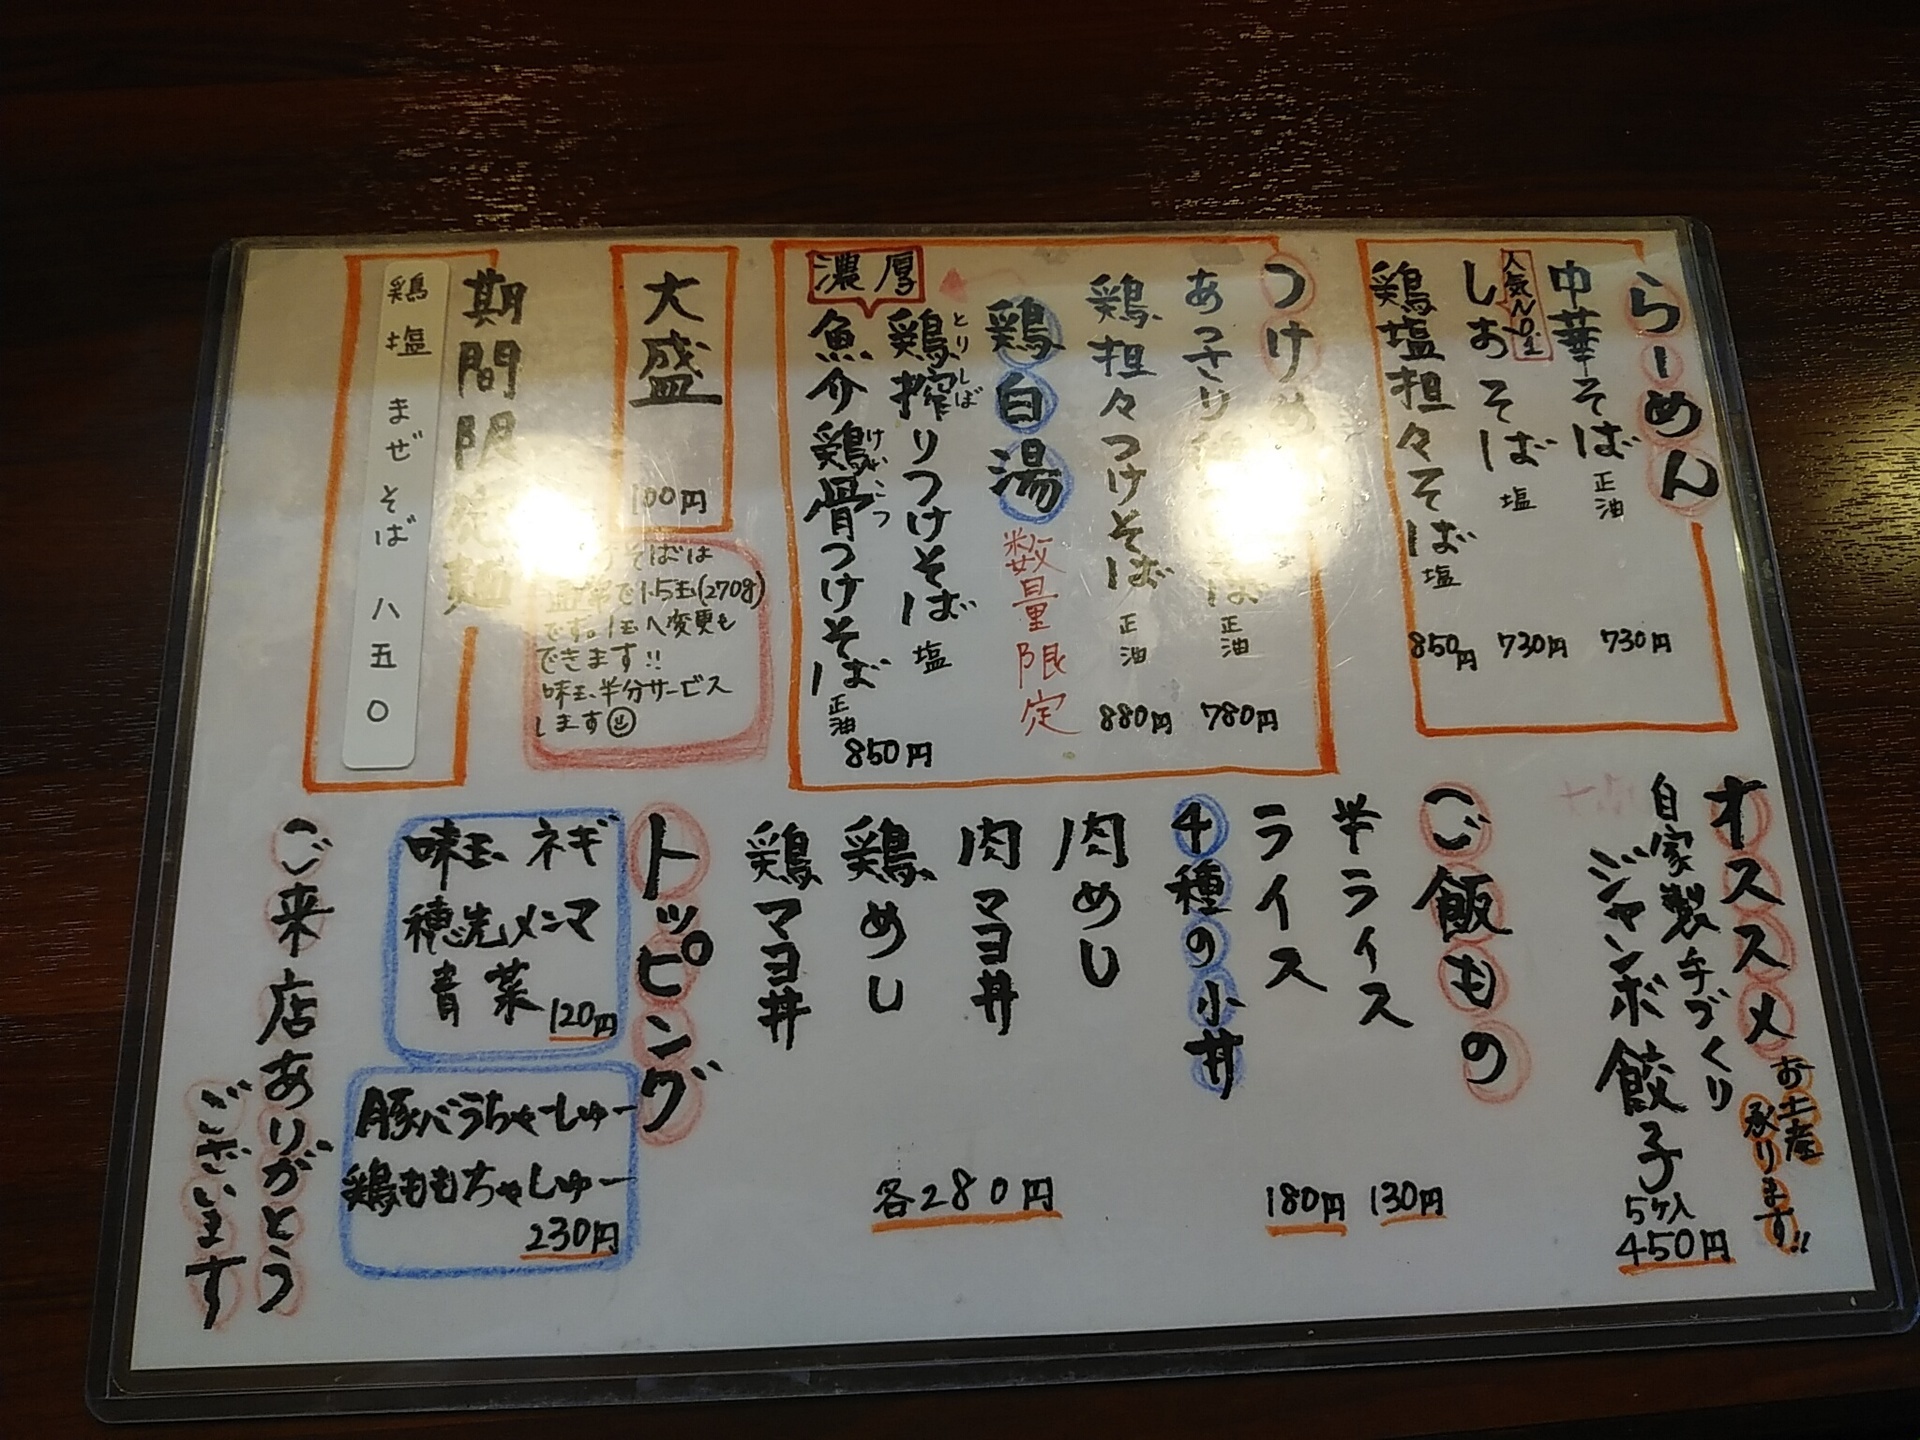 らーめん
中華そば 正油 730円
人気No.1
しおそば 塩 730円
鶏塩担々そば 塩 850円
つけめ
あっさり
ば 正油 780円
鶏担々つけそば 正油 880円
鶏白湯 数量限定
濃厚
とりしぼ
鶏搾りつけそば 塩
けいこつ
魚介鶏骨つけそば 正油
850円
大盛 100円
そばは
で1.5玉(270g)
です。1玉へ変更も
できます!!
味玉半分サービス
します
期間限定麺
鶏塩まぜそば 八五〇
オススメ
お土産
承ります!!
自家製手づくり
ジャンボ餃子
5ヶ入
450円
ご飯もの
半ライス 130円
ライス 180円
4種の小丼
肉めし
肉マヨ丼
鶏めし
鶏マヨ丼
各280円
トッピング
味玉 ネギ
穂先メンマ
青菜 120円
豚バラちゃーしゅー
鶏ももちゃしゅー
230円
ご来店ありがとう
ございます